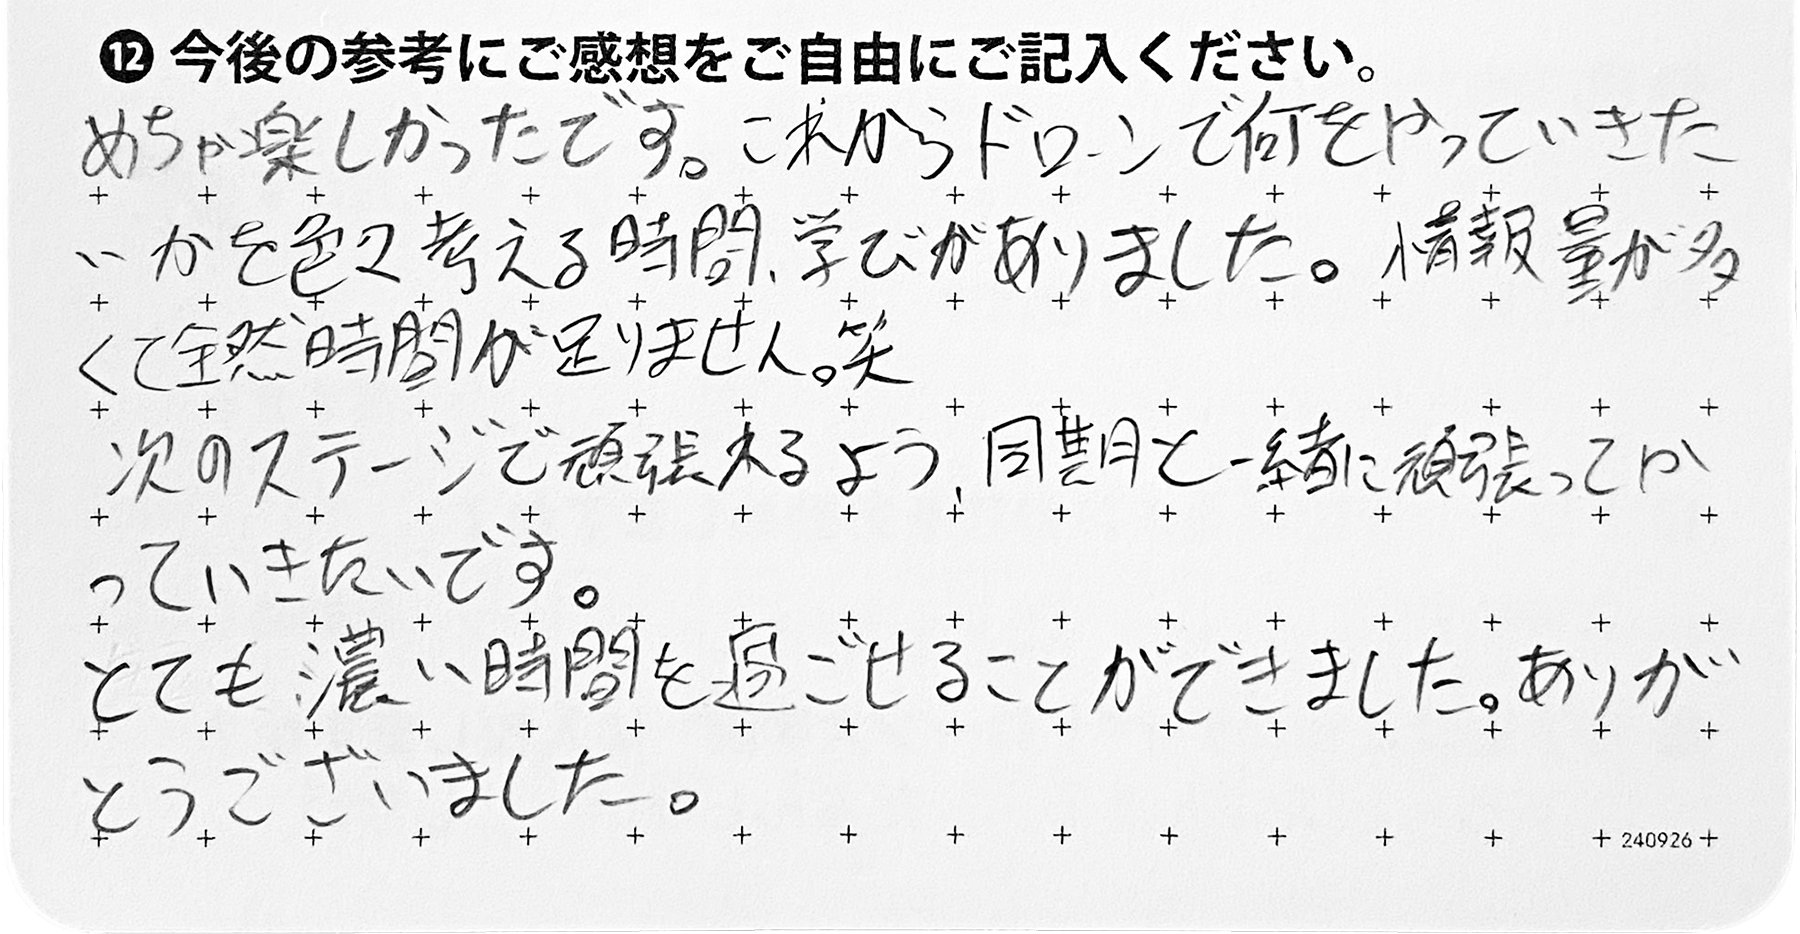 ⓬今後の参考にご感想をご自由にご記入ください。
めちゃ楽しかったです。これからドローンで何をやっていきた
いかを色々考える時間、学びがありました。情報量が多
くて全然時間が足りません。笑
次のステージで頑張れるよう、同期と一緒に頑張ってか
っていきたいです。
とても濃い時間を過ごせることができました。ありが
とうございました。
240926